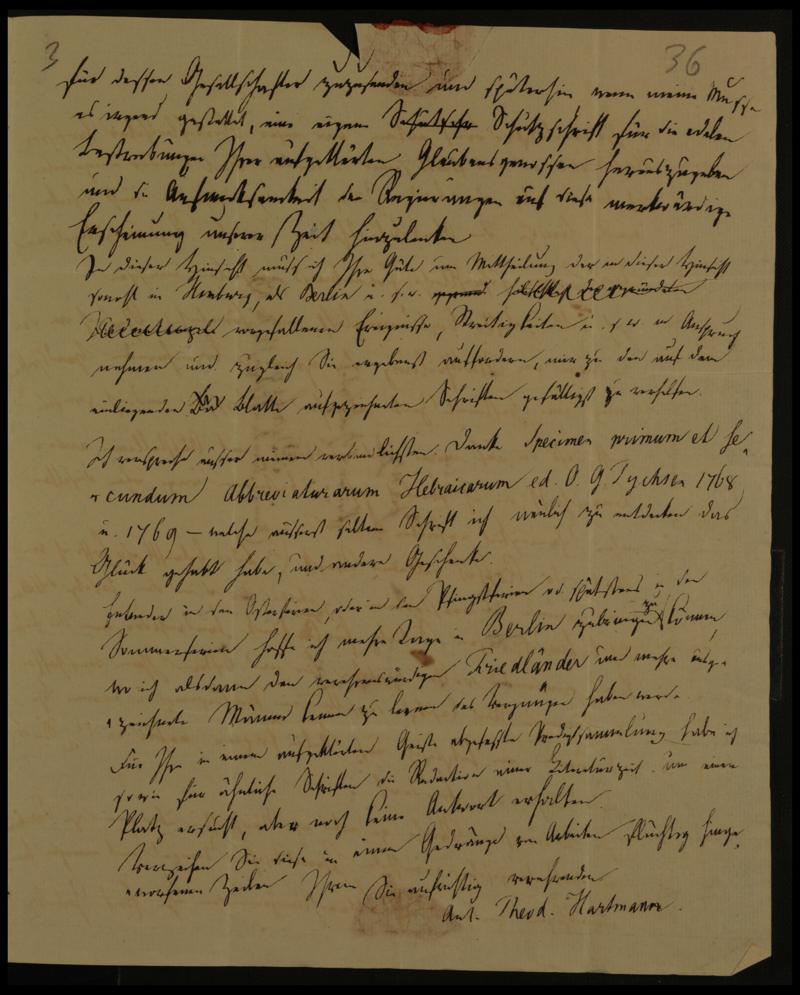 3
36
für dessen Gesellschafter zuzusenden und späterhin wenn meine Musse
es irgend gestattet, eine eigene Schutzschrift für die edelen
Bestrebungen Ihrer aufgeklärten Glaubensgenossen herauszugeben
und die Aufmerksamkeit der Regierungen auf diese merkwürdige
Erscheinung unserer Zeit hinzulenken
In dieser Hinsicht muss ich Ihre Güte um Mittheilung der in dieser Hinsicht
sowohl in Hamburg, als Berlin u. s. w.
vorgefallenen Ereignisse, Streitigkeiten u. s. w. in Anspruch
nehmen und zugleich Sie ergebenst auffordern, mir zu den auf dem
einliegenden Blatte aufgezeichneten Schriften gefälligst zu verhelfen.
Ich verspreche ausser meinem verbindlichsten Danke Specimen primum et se-
cundum Abbreviaturarum Hebraicarum ed. O. G. Tychsen 1768
u. 1769 – welche äusserst seltene Schrift ich neulich zu entdecken das
Glück gehabt habe, und andere Geschenke.
in den Osterferien, oder in den Pfingstferien od. spätstens in den
Sommerferien hoffe ich mehre Tage in Berlin zubringen zu können,
wo ich alsdann den verehrenswürdigen Friedländer und mehre ausge-
zeichnete Männer kennen zu lernen das Vergnügen haben werde.
Für Ihre in einem aufgeklärten Geiste abgefasste Predigtsammlung habe ich
sowie für ähnliche Schriften die Redaction einer Literaturzeit. um einen
Platz ersucht, aber noch keine Antwort erhalten.
Verzeihen Sie diese in einem Gedränge von Arbeiten flüchtig hinge-
worfenen Zeilen Ihrem Sie aufrichtig verehrenden
Ant. Theod. Hartmann.